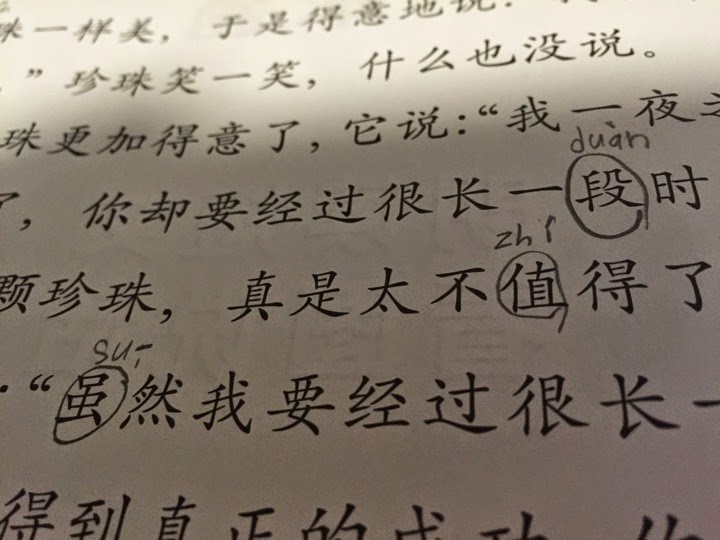 珠一样美，于是得意地说：
”珍珠笑一笑，什么也没说。
珠更加得意了，它说：“我一夜之
duàn
了，你却要经过很长一段时
zhí
颗珍珠，真是太不值得了
suī
“虽然我要经过很长一
得到真正的成功